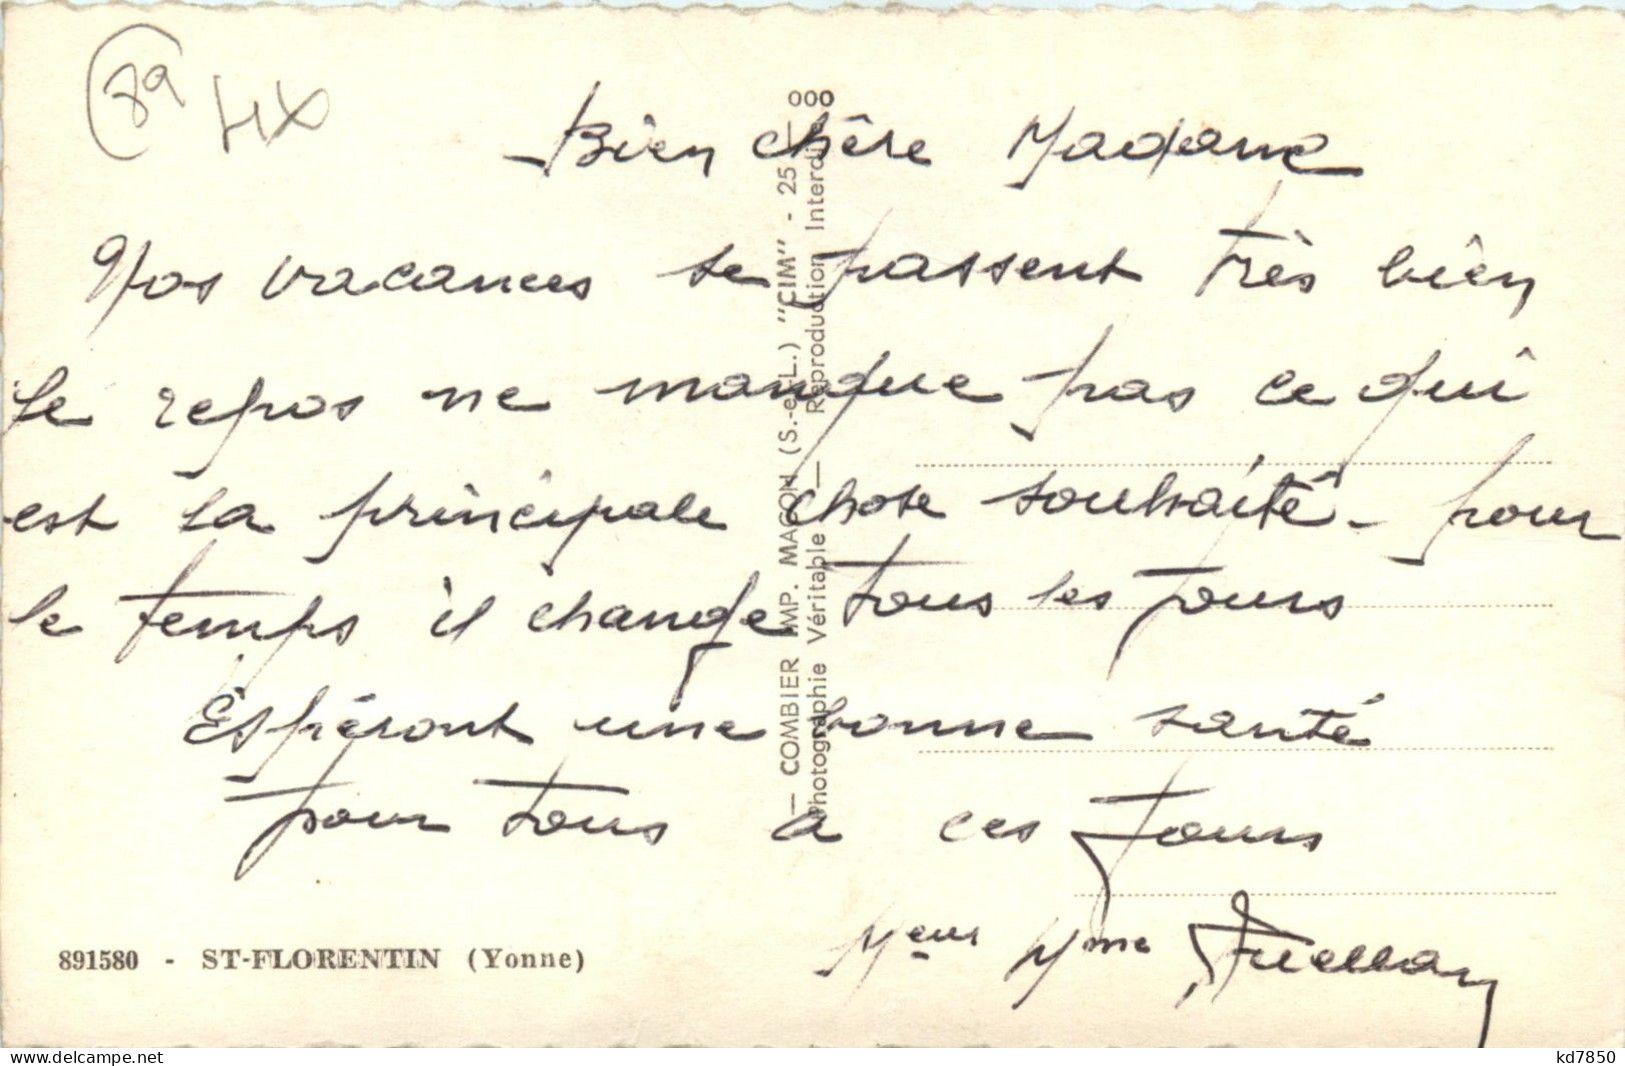 89
HX
Bien chère Madame
Nos vacances se passent très bien
Le repos ne manque pas ce qui
est la principale chose souhaité - pour
le temps il change tous les jours
Espéront une bonne santé
pour tous a ces jours
Meur Mme
891580 - ST-FLORENTIN (Yonne)
— COMBIER IMP. MACON (S.-et-L.) "CIM" - 25
Photographie Véritable — Reproduction Interdite
000
delcampe.net
kd7850